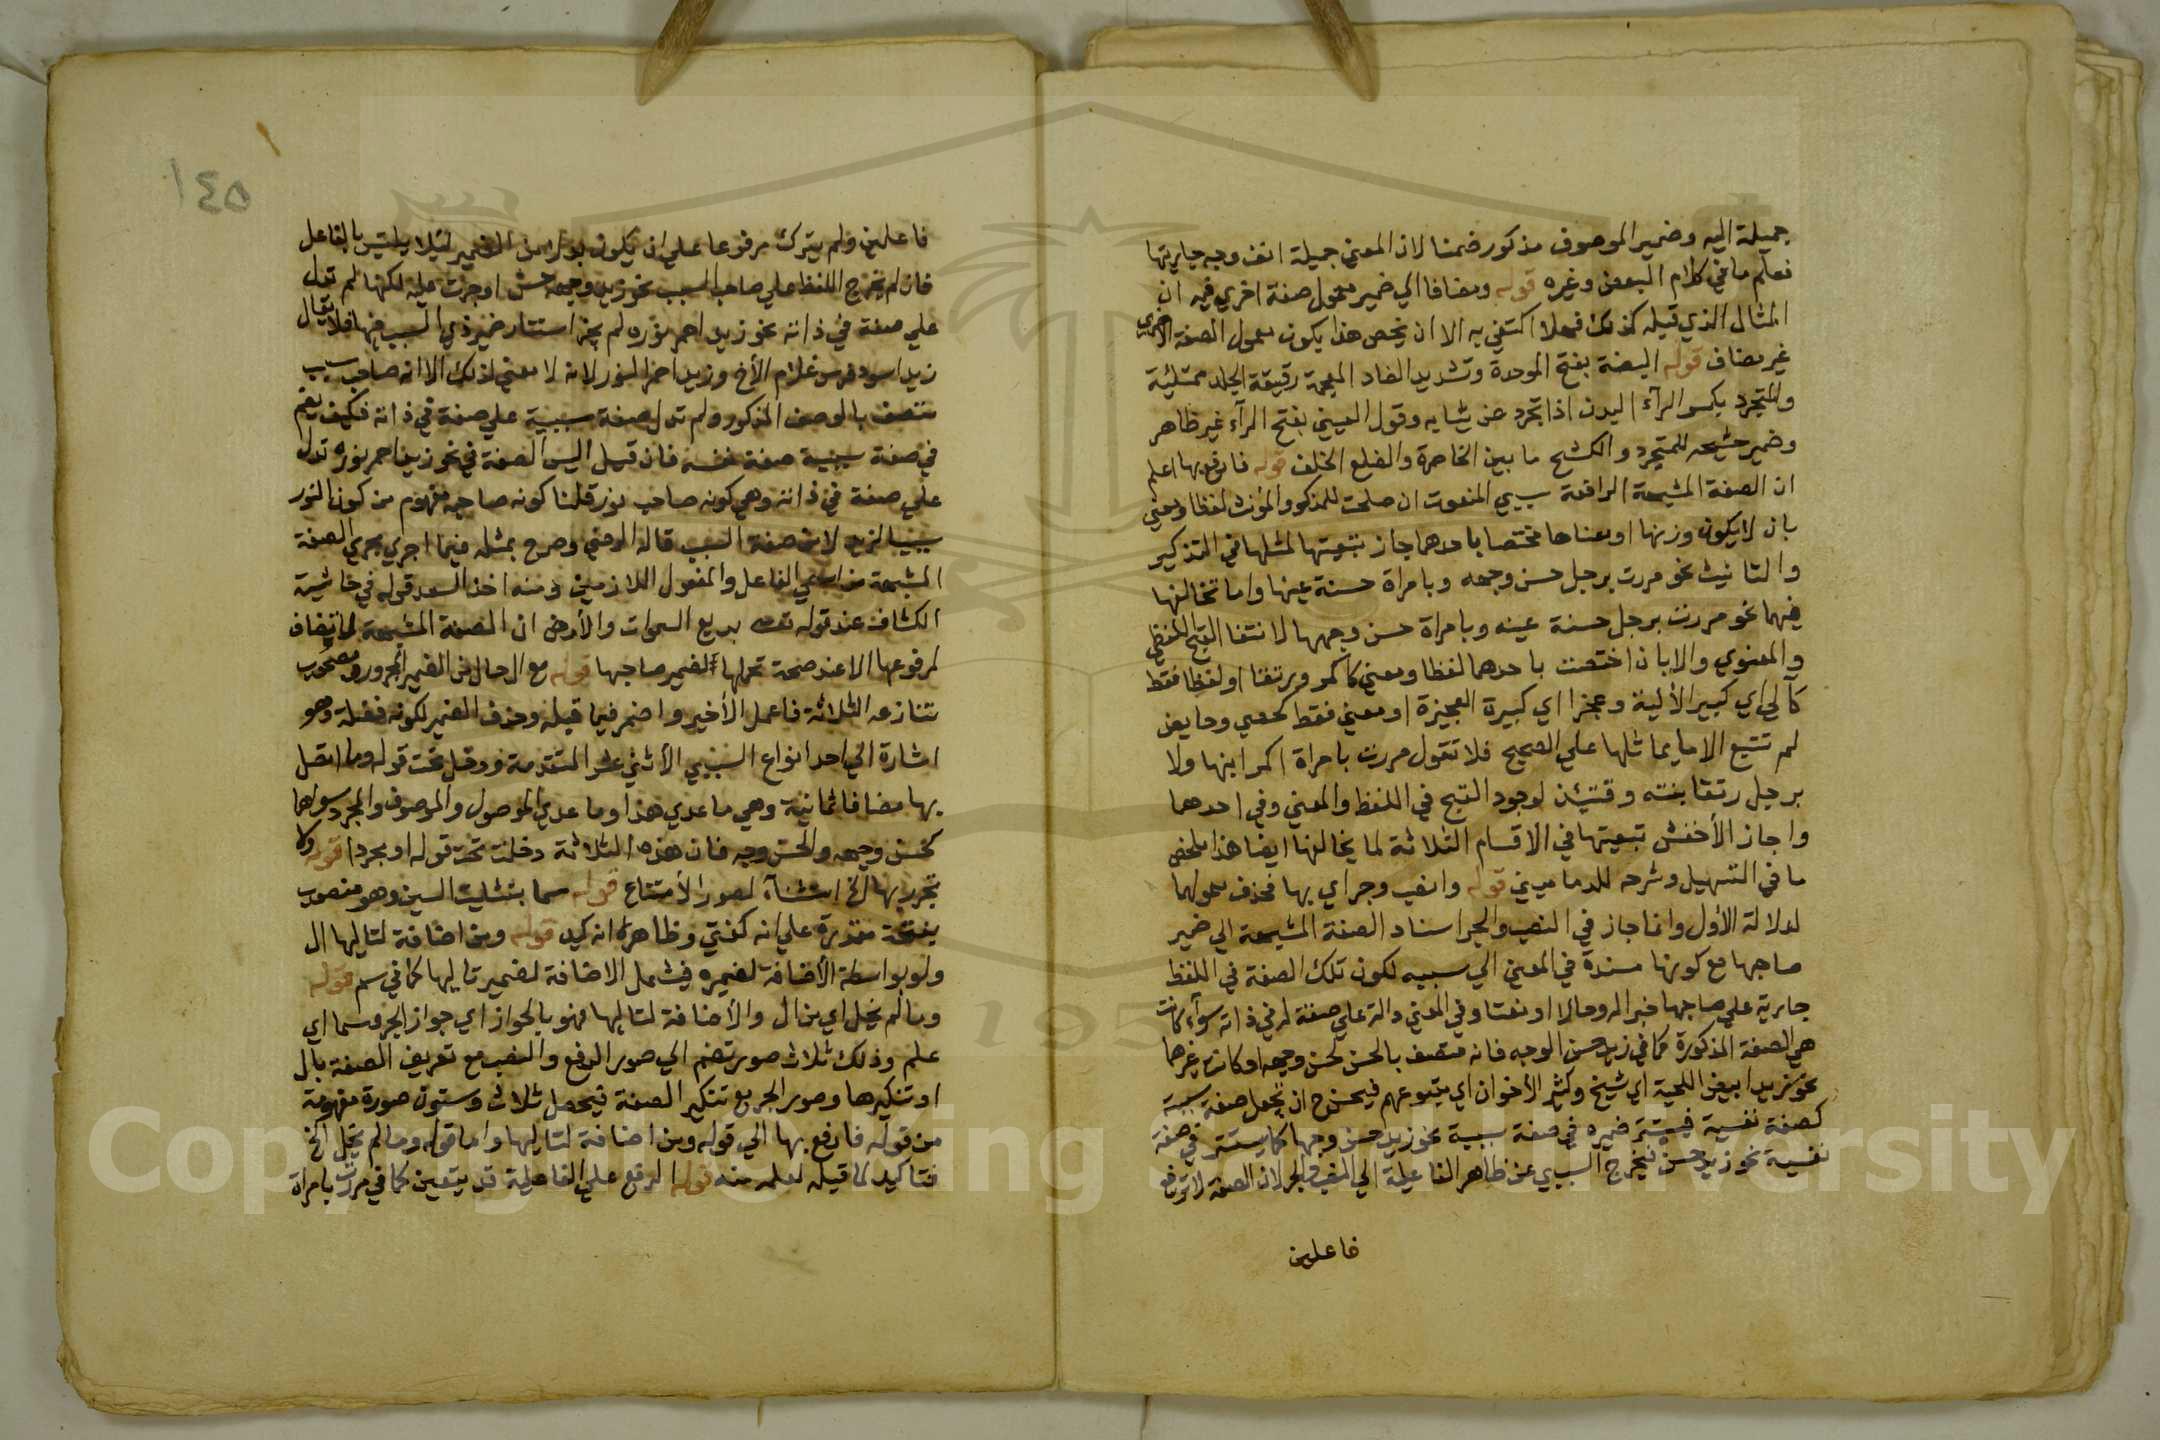 جميلة اليه وضمير الموصوف مذكور ضمنا لان المعني جميلة انف وجه جاريتها
فعلم ما في كلام البعض وغيره قوله ومضافا الي ضمير معمول صفة اخري فيه ان
المثال الذي قبله كذلك فهلا اكتفي به الا ان يخص هذا بكون معمول الصفة الاخري
غير مضاف قوله البضة بفتح الموحدة وتشديد الضاد المعجمة رقيقة الجلد ممتلئية
والمتجرد بكسر الرآء البدن اذا تجرد عن ثيابه وقول العيني بفتح الرآء غير ظاهر
وضمير كشحه للمتجرد والكشح ما بين الخاصرة والضلع الخلف قوله فارفع بها اعلم
ان الصفة المشبهة الرافعة سببي المنعوت ان صلحت للمذكر والمؤنث لفظا ومعني
بان لايكون وزنها او معناها مختصا باحدهما جاز تبعيتها لمثلها في التذكير
والتانيث نحو مررت برجل حسن وجهه وبامراة حسنة عينها واما تخالفها
فيهما نحو مررت برجل حسنة عينه وبامراة حسن وجهها لانتفا القبح اللفظي
والمعنوي والا بان اختصت باحدهما لفظا ومعني كاكمر ورتقا او لفظا فقط
كآلي اي كبير الألية وعجزا اي كبيرة العجيزة او معني فقط كخصي وحايض
لم تتبع الا ما يماثلها علي الصحيح فلا تقول مررت بامراة اكمر ابنها ولا
برجل رتقا بنته وقتئذ لوجود القبح في اللفظ والمعني وفي احدهما
واجاز الأخفش تبعيتها في الاقسام الثلاثة لما يخالفها ايضا هذا ملخص
ما في التسهيل وشرحه للدماميني قوله وانصب وجر اي بها فحذف معمولهما
لدلالة الأول وانما جاز في النصب والجر اسناد الصفة المشبهة الي ضمير
صاحبها مع كونها مسندة في المعني الي سببيه لكون تلك الصفة في اللفظ
جارية علي صاحبها خبرا له وحالا او نعتا وفي المعني دالة علي صفة له في ذاته سوآء كانت
هي الصفة المذكورة كما في زيد حسن الوجه فانه متصف بالحسن لحسن وجهه او كانت غيرها
نحو زيد ابيض اللحية اي شيخ وكثير الاخوان اي متقو بهم فيحسن ح ان تجعل صفة سببه
كصفة نفسية فيستتر ضميره في صفة سببية نحو زيد حسن وجها كما يستتر في صفة
نفسية نحو زيد حسن فيخرج السببي عن ظاهر الفاعلية الي النصب والجر لان الصفة لا ترفع
فاعلين
١٤٥
فاعلين ولم يترك مرفوعا علي ان يكون بدلا من الضمير لئلا يلتبس بالفاعل
فان لم يخرج اللفظ علي صاحب السبب نحو زيد وجهه حسن او جرت عليه لكنها لم تدل
علي صفة في ذاته نحو زيد احمر ثوره لم يجز استتار ضمير ذي السبب فيها فلا يقال
زيد اسود فرس غلام الأخ وزيد احمر الثور لانه لا معني لذلك الا انه صاحب سبب
متصف بالوصف المذكور ولم تدل صفة سببية علي صفة في ذاته فكيف يضم
في صفة سببية صفة نفسه فان قيل اليس الصفة في نحو زيد احمر ثوره تدل
علي صفة في ذاته وهي كونه صاحب ثور قلنا كونه صاحبه مفهوم من كون الثور
سببا لزيد لا من صفة السبب قاله الرضي وصرح بمثله فيما اجري مجري الصفة
المشبهة من اسمي الفاعل والمفعول اللازمين ومنه اخذ السعد قوله في حاشية
الكشاف عند قوله تعـ بديع السموات والأرض ان الصفة المشبهة لا تضاف
لمرفوعها الا عند صحة تحملها لضمير صاحبها قوله مع ال حال من الضمير المجرور ومصحوب
تنازعه الثلاثة فاعمل الأخير واضمر فيما قبله وحذف الضمير لكونه فضلة وهو
اشارة الي احد انواع السببي الأثني عشر المتقدمة ودخل تحت قوله وما اتصل
بها مضافا ثمانية وهي ما عدي هذا وما عدي الموصول والموصوف والمجرد سواهما
كحسن وجهه والحسن وجه فان هذه الثلاثة دخلت تحت قوله او مجردا قوله ولا
تجرر بها الخ استثنآء لصور الأمتناع قوله سما بتثليث السين وهو منصوب
بفتحة مقدرة علي انه كفتي وظاهرة انه كيد قوله ومن اضافة لتاليها ال
ولو بواسطة الأضافة لضميره فيشمل الاضافة لضمير تاليها كما في سم قوله
وما لم يخل اي من ال والأضافة لتاليها فهو بالجواز اي جواز الجر وسما اي
علم وذلك ثلاث صور تضم الي صور الرفع والنصب مع تعريف الصفة بال
او تنكيرها وصور الجر مع تنكير الصفة فيحصل ثلاث وستون صورة مفهومة
من قوله فارفع بها الي قوله ومن اضافة لتاليها واما قوله وما لم يخل الخ
فتاكيد لما قبله لعلمه منه قوله الرفع علي الفاعلية قد يتعين كما في مررت بامراة